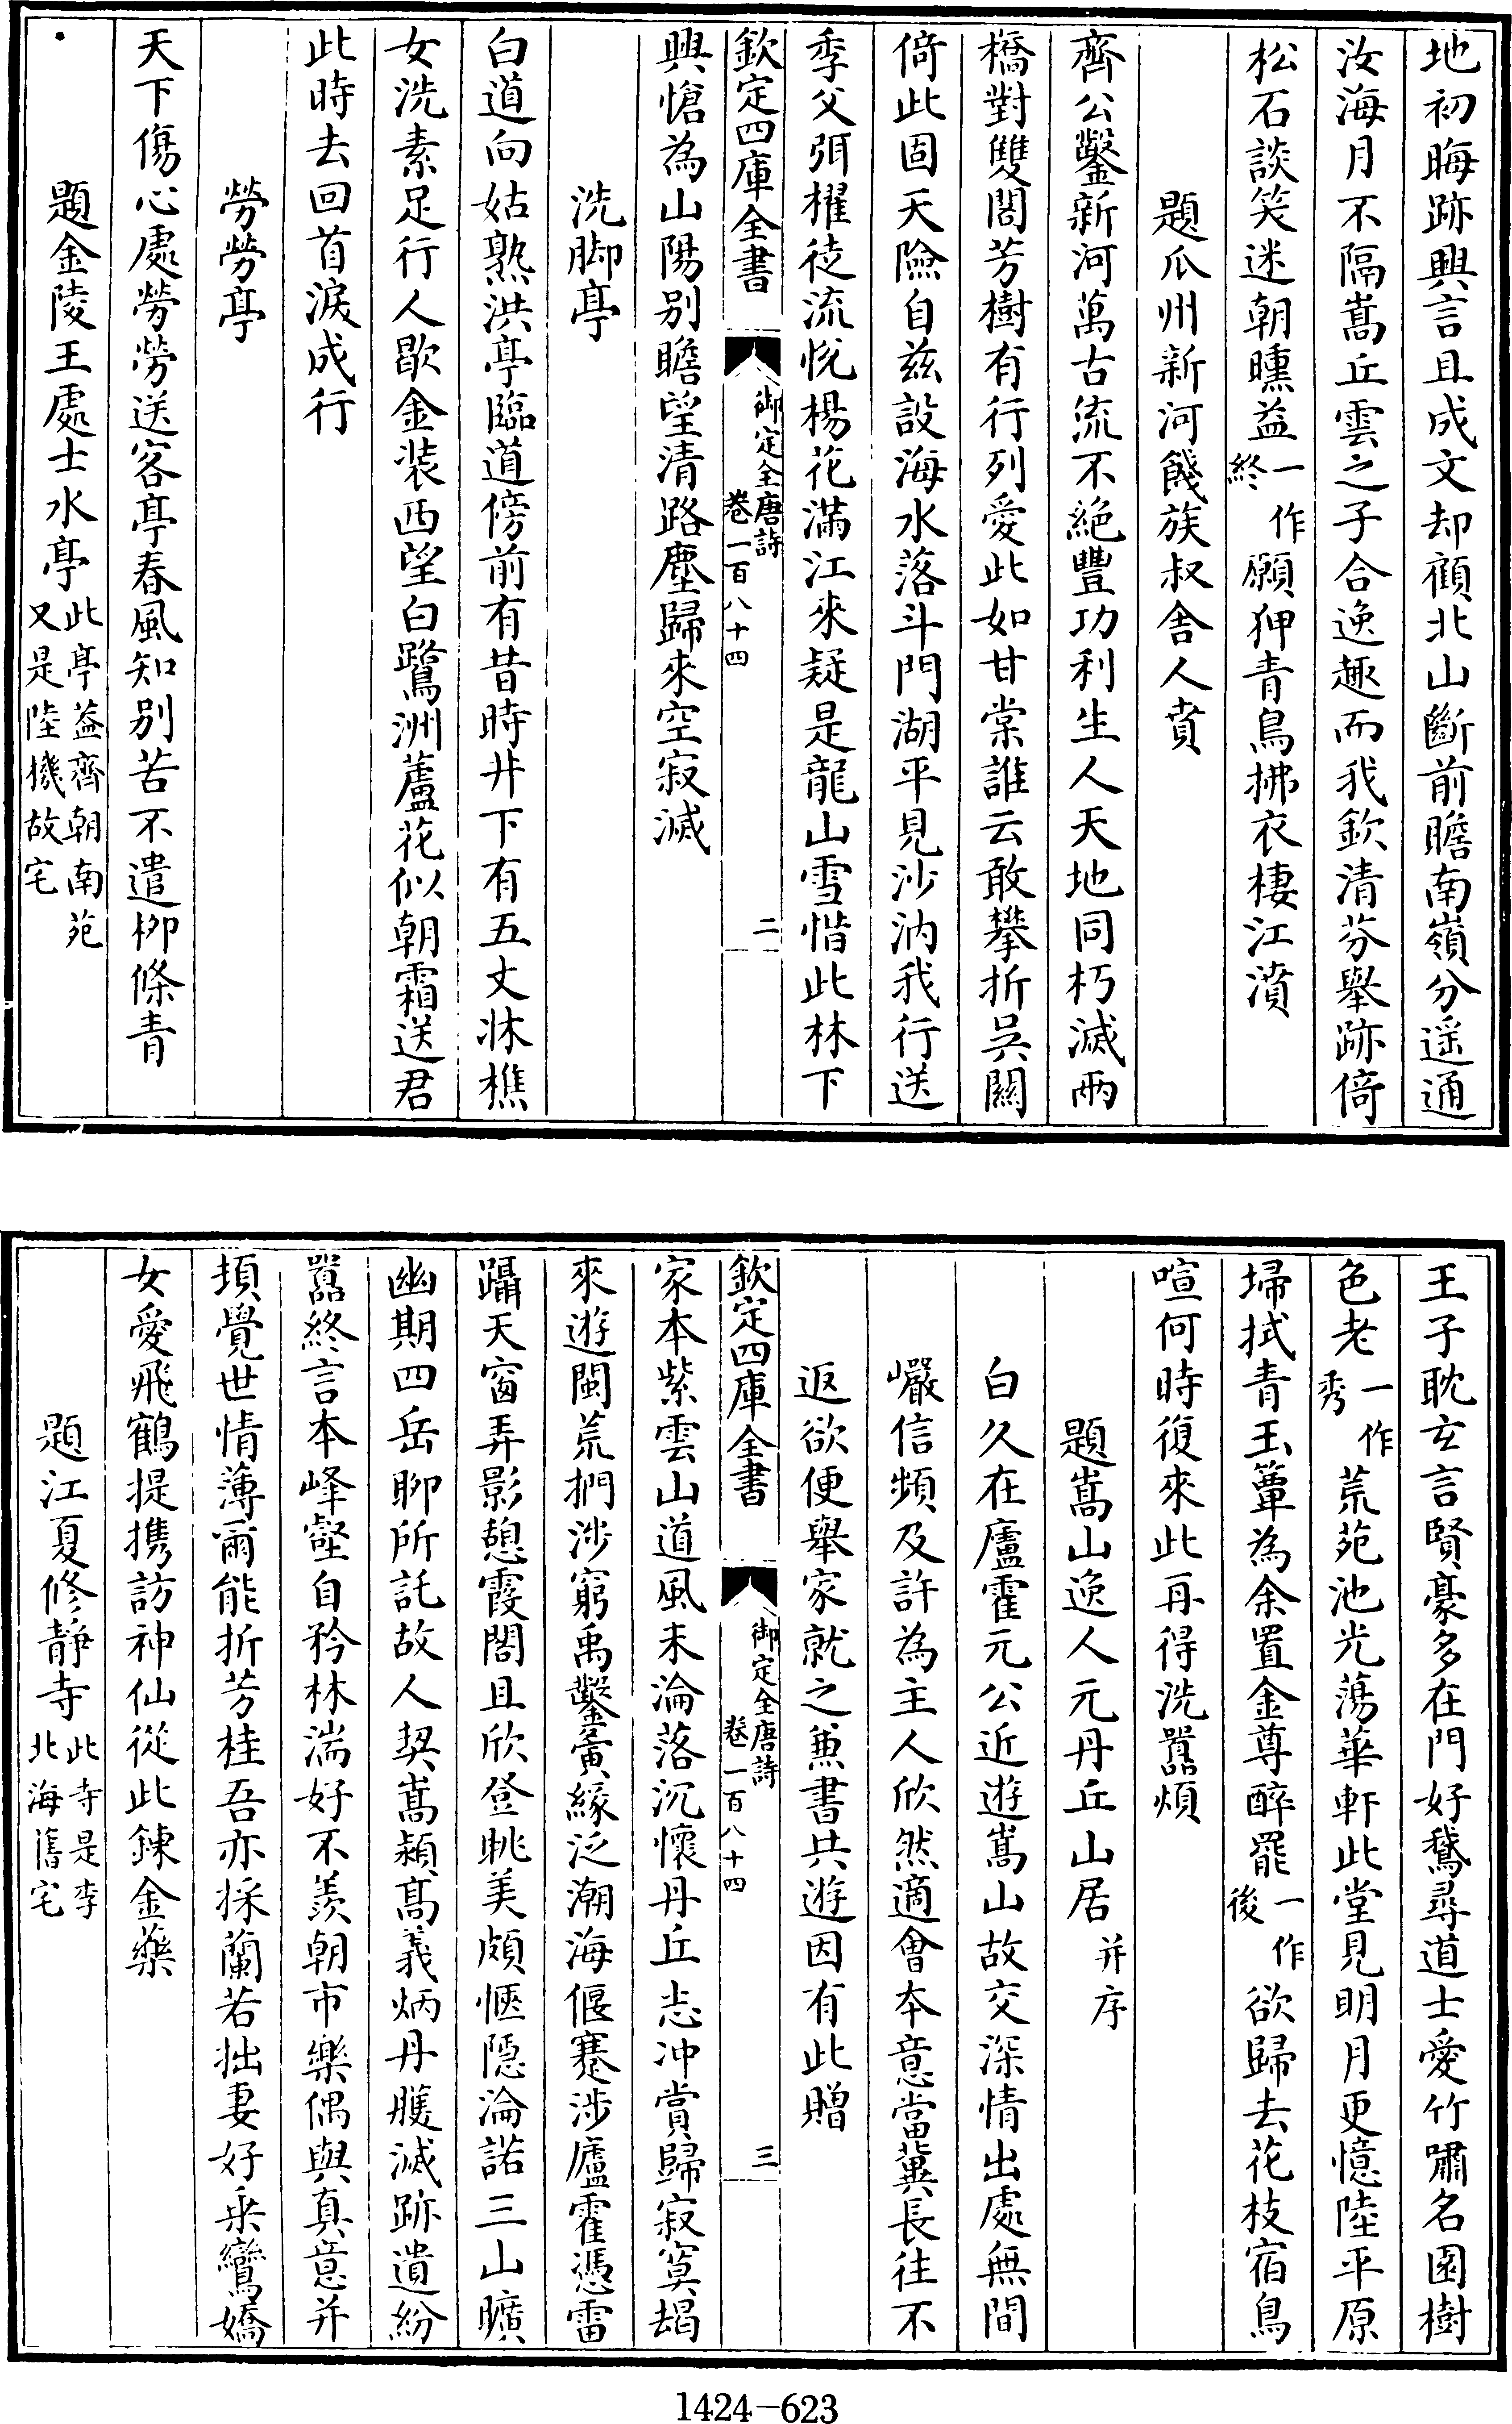 地初晦跡興言且成文却顧北山斷前瞻南嶺分遥通
汝海月不隔嵩丘雲之子合逸趣而我欽清芬舉跡倚
松石談笑迷朝曛益一作終願狎青鳥拂衣棲江濆
題瓜州新河餞族叔舍人賁
齊公鑿新河萬古流不絶豐功利生人天地同朽滅兩
橋對雙閣芳樹有行列愛此如甘棠誰云敢攀折吳關
倚此固天險自兹設海水落斗門湖平見沙汭我行送
季父弭櫂徒流悅楊花滿江來疑是龍山雪惜此林下
欽定四庫全書
御定全唐詩
卷一百八十四
二
興愴為山陽别瞻望清路塵歸來空寂滅
洗脚亭
白道向姑熟洪亭臨道傍前有昔時井下有五丈牀樵
女洗素足行人歇金装西望白鷺洲蘆花似朝霜送君
此時去回首淚成行
勞勞亭
天下傷心處勞勞送客亭春風知别苦不遣柳條青
題金陵王處士水亭此亭葢齊朝南苑
又是陸機故宅
王子耽玄言賢豪多在門好鵞尋道士愛竹嘯名園樹
色老一作秀荒苑池光蕩華軒此堂見明月更憶陸平原
埽拭青玉簟為余置金尊醉罷一作後欲歸去花枝宿鳥
喧何時復來此再得洗囂煩
題嵩山逸人元丹丘山居并序
白久在廬霍元公近遊嵩山故交深情出處無間
巗信頻及許為主人欣然適會本意當冀長往不
返欲便舉家就之兼書共遊因有此贈
欽定四庫全書
御定全唐詩
卷一百八十四
三
家本紫雲山道風未淪落沉懷丹丘志冲賞歸寂寞朅
來遊閩荒捫涉窮禹鑿夤緣泛潮海偃蹇涉廬霍憑雷
躡天窗弄影憩霞閣且欣登眺美頗愜隠淪諾三山曠
幽期四岳聊所託故人契嵩潁髙義炳丹雘滅跡遺紛
囂終言本峰壑自矜林湍好不羡朝市樂偶與真意并
頓覺世情薄爾能折芳桂吾亦採蘭若拙妻好乗鸞嬌
女愛飛鶴提携訪神仙從此鍊金藥
題江夏修靜寺此寺是李
北海舊宅
1424-623